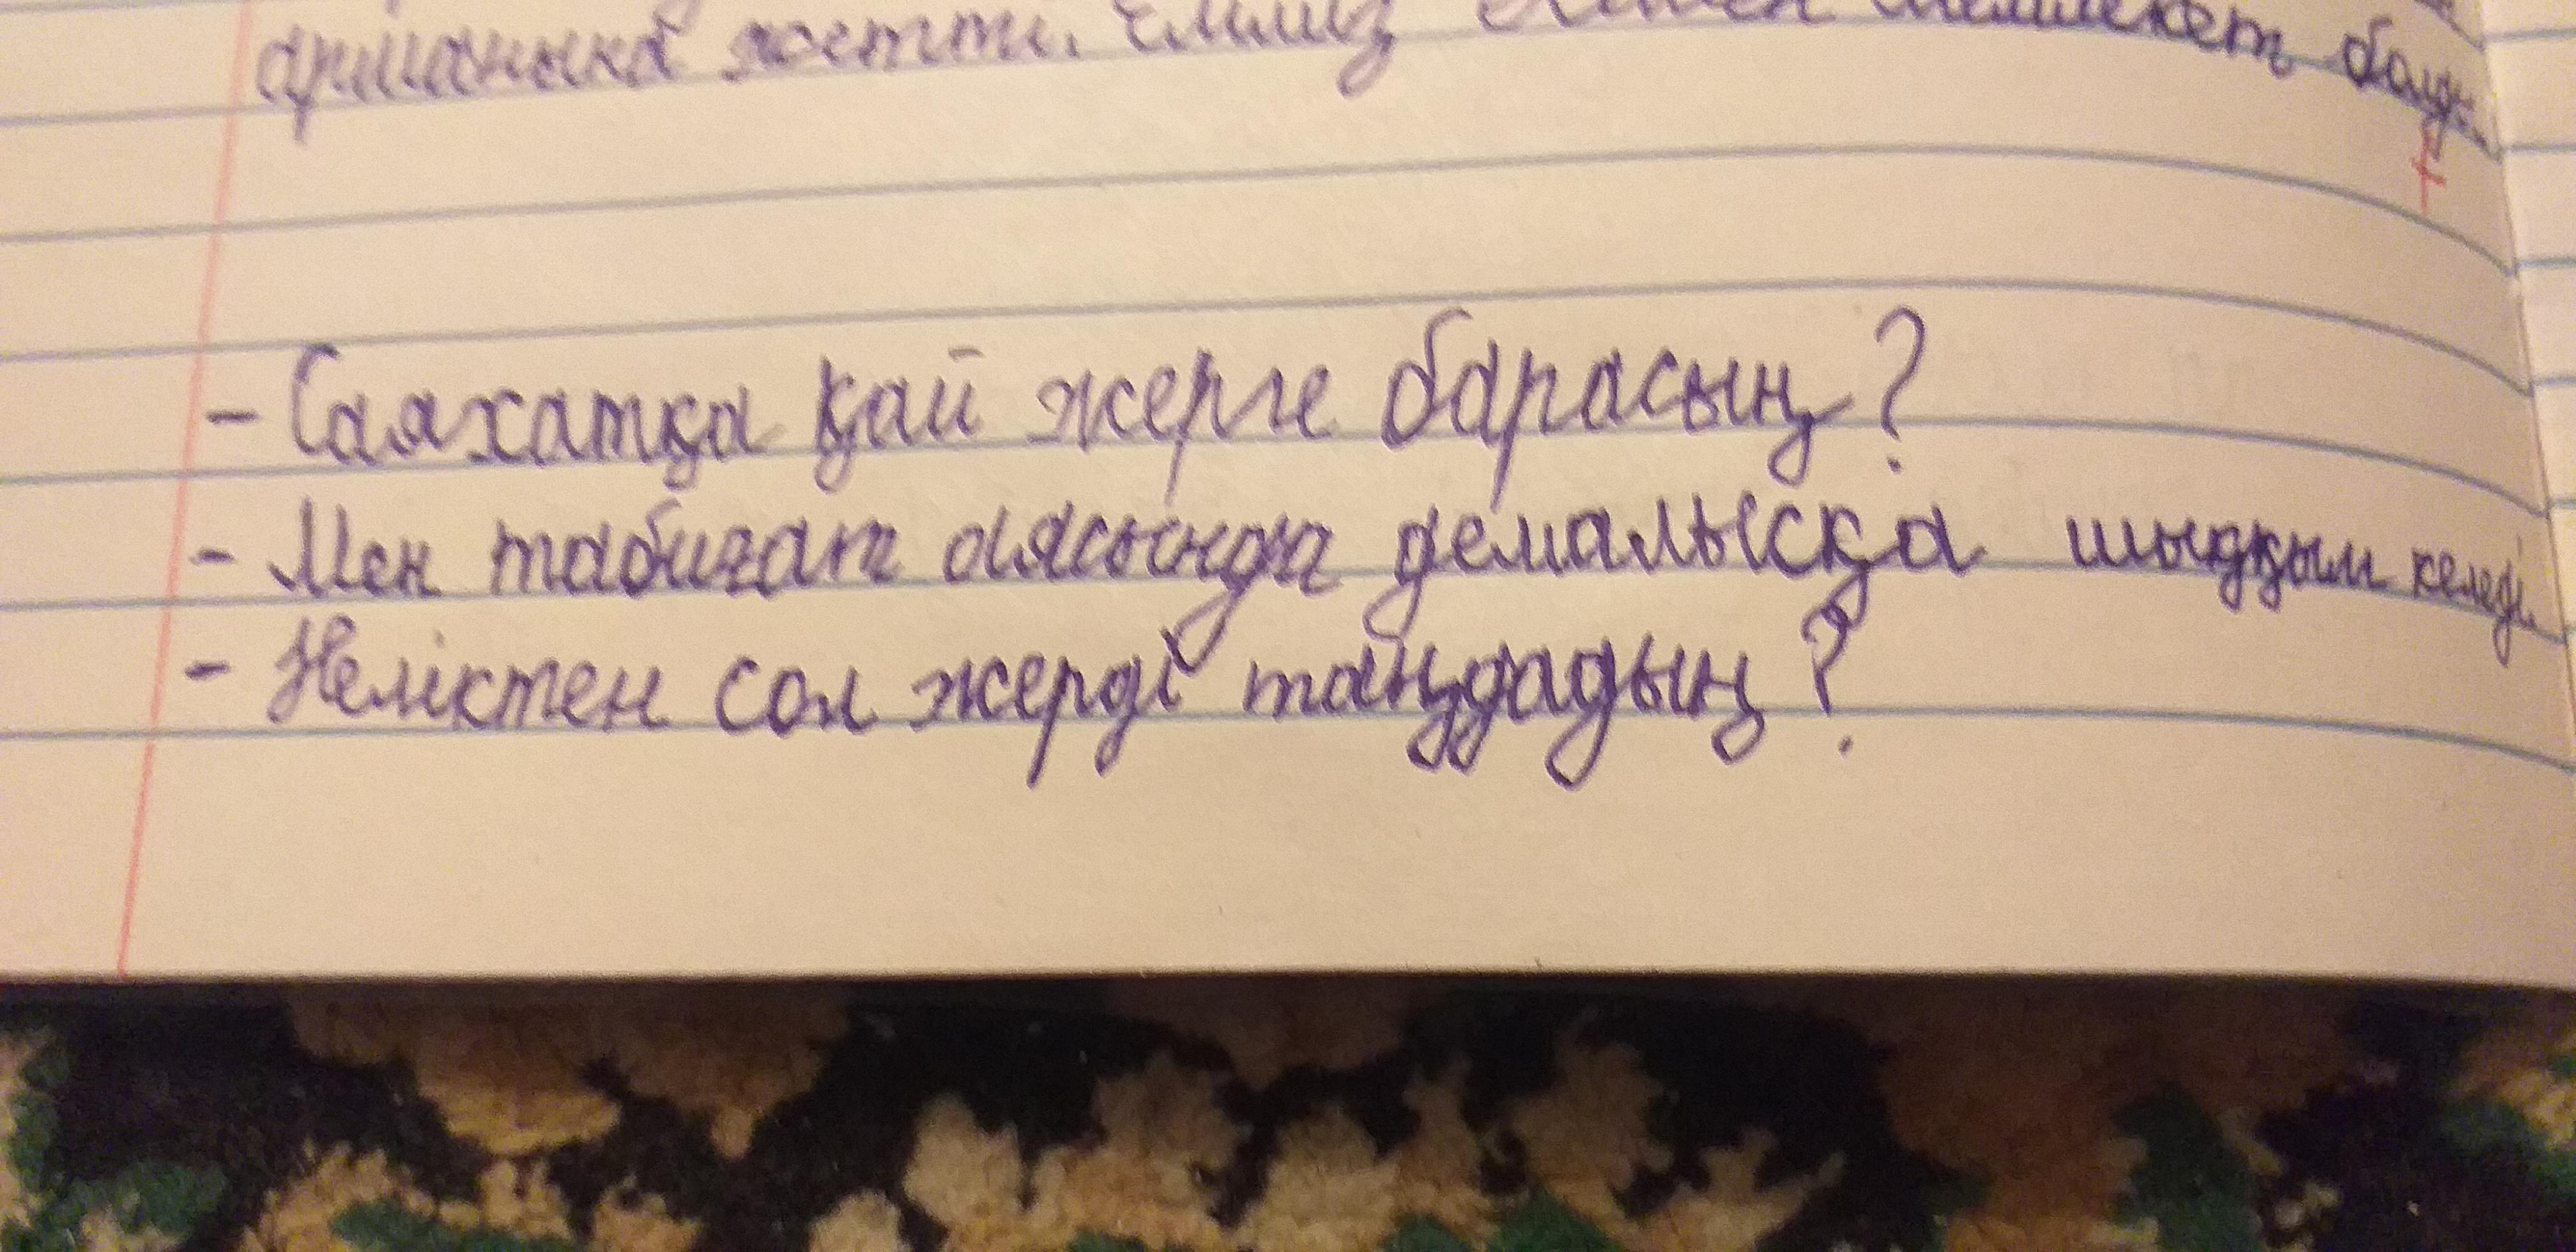 арманына жетті. Еліміз мемлекет болу
- Саяхатқа қай жерге барасың?
- Мен табиғат аясында демалысқа шыққым келеді.
- Неліктен сол жерді таңдадың?